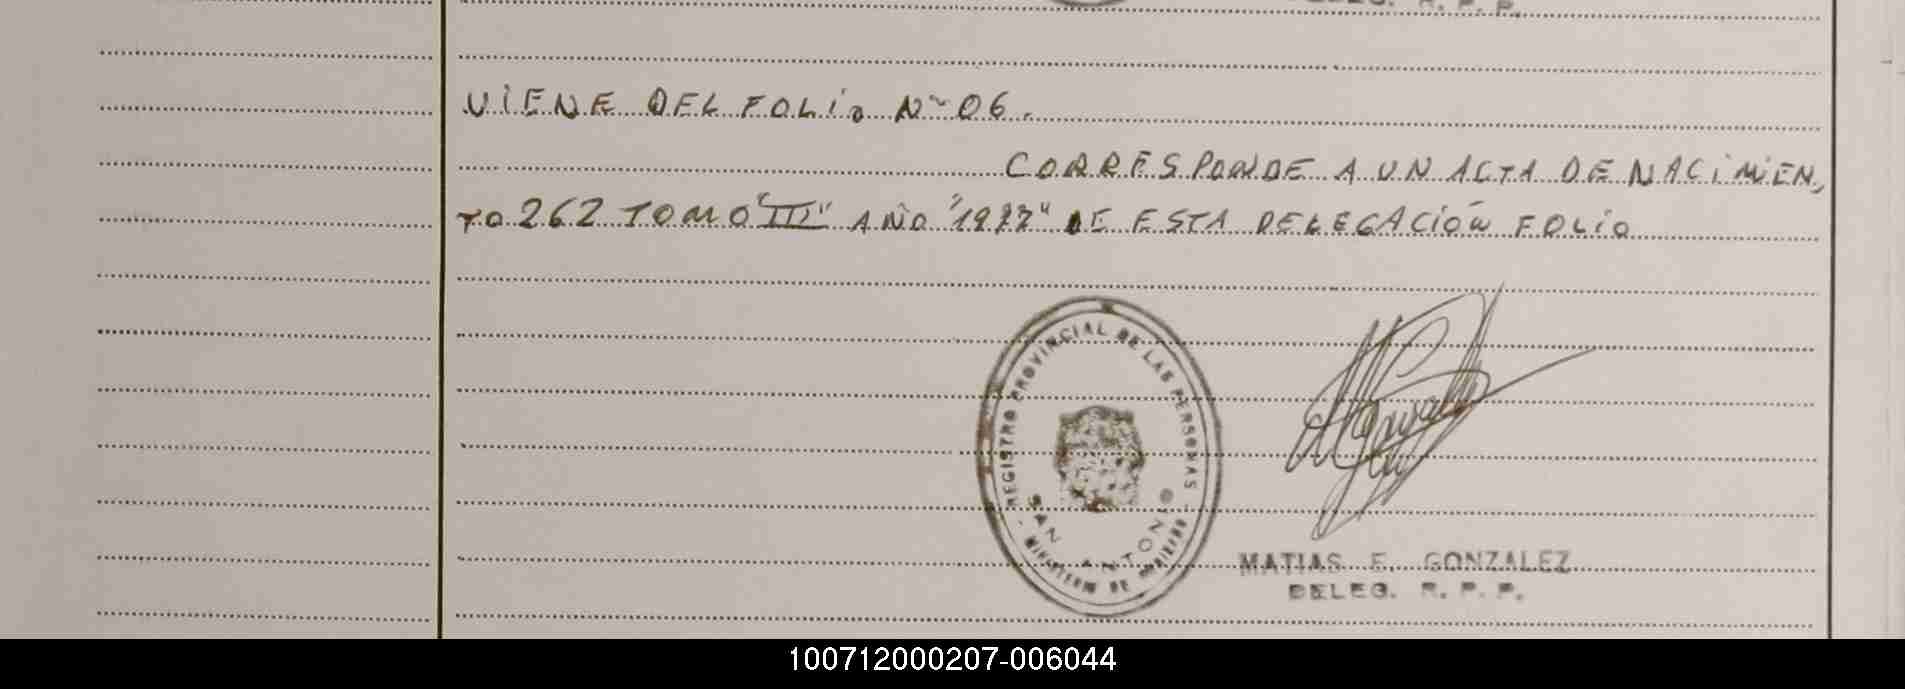 DELEG. R. P. P.
VIENE DEL FOLIO Nº 06.
CORRESPONDE A UN ACTA DE NACIMIEN,
TO 262 TOMO "III" AÑO "1977" DE ESTA DELEGACIÓN FOLIO
REGISTRO PROVINCIAL DE LAS PERSONAS
SAN ANTONIO
- MINISTERIO DE GOBIERNO -
MATIAS E. GONZALEZ
DELEG. R. P. P.
100712000207-006044